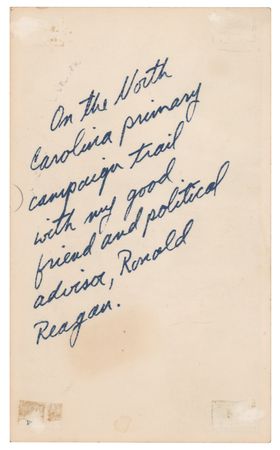 On the North
Carolina primary
campaign trail
with my good
friend and political
advisor, Ronald
Reagan.